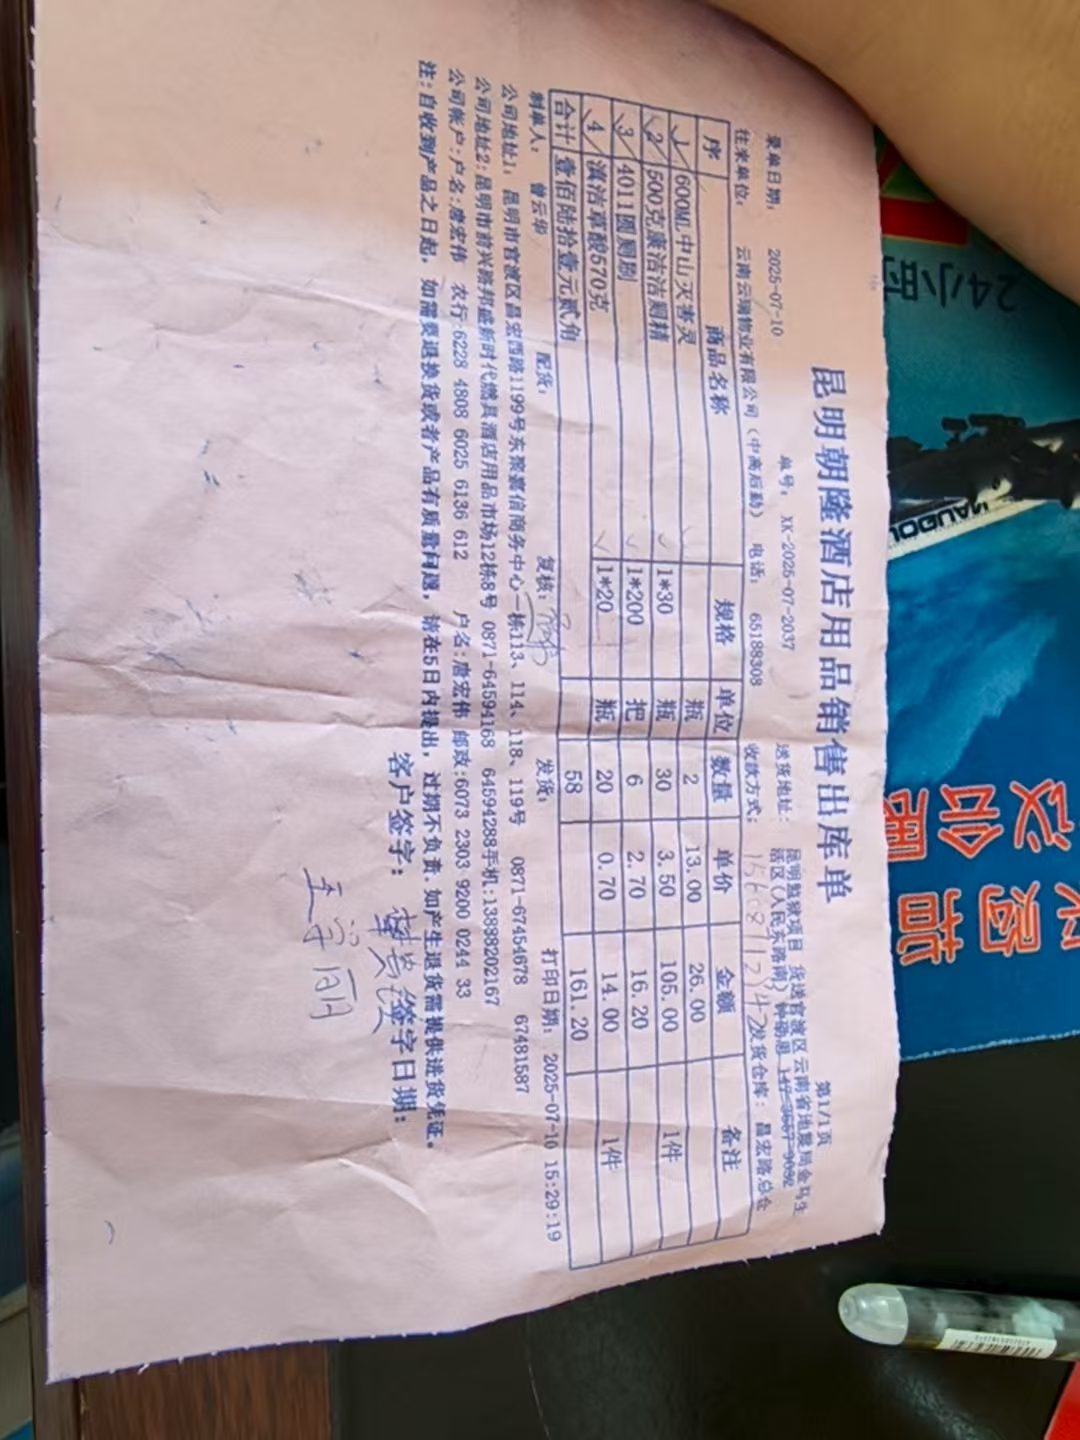 昆明朝隆酒店用品销售出库单
第1/1页
录单日期： 2025-07-10 单号： XK-2025-07-2037 送货地址： 昆明监狱项目 货送官渡区 云南省地震局金马生活区（人民东路南）
往来单位： 云南云瑞物业有限公司（中高后勤） 电话： 65188308 收款方式： 发货仓库： 昌宏路总仓
序 商品名称 规格 单位 数量 单价 金额 备注
1 600ML中山灭害灵 瓶 2 13.00 26.00
2 500克康洁洁厕精 1*30 瓶 30 3.50 105.00 1件
3 4011圆厕刷 1*200 把 6 2.70 16.20
4 滇洁草酸570克 1*20 瓶 20 0.70 14.00 1件
合计 壹佰陆拾壹元贰角 58 161.20
制单人： 曾云华 配货： 复核： 发货： 打印日期： 2025-07-10 15:29:19
公司地址1： 昆明市官渡区昌宏西路1199号东聚嘉信商务中心一栋113、114、118、119号 0871-67454678 67481587
公司地址2：昆明市前兴路邦盛新时代燃具酒店用品市场12栋8号 0871-64594168 64594288手机:13888202167
公司帐户:户名:唐宏伟 农行:6228 4808 6025 6136 612 户名:唐宏伟 邮政:6073 2303 9200 0244 33
注:自收到产品之日起，如需要退换货或者产品有质量问题，请在5日内提出，过期不负责.如产生退货需提供进货凭证。
客户签字： 签字日期：
24小时
采购指
议会展